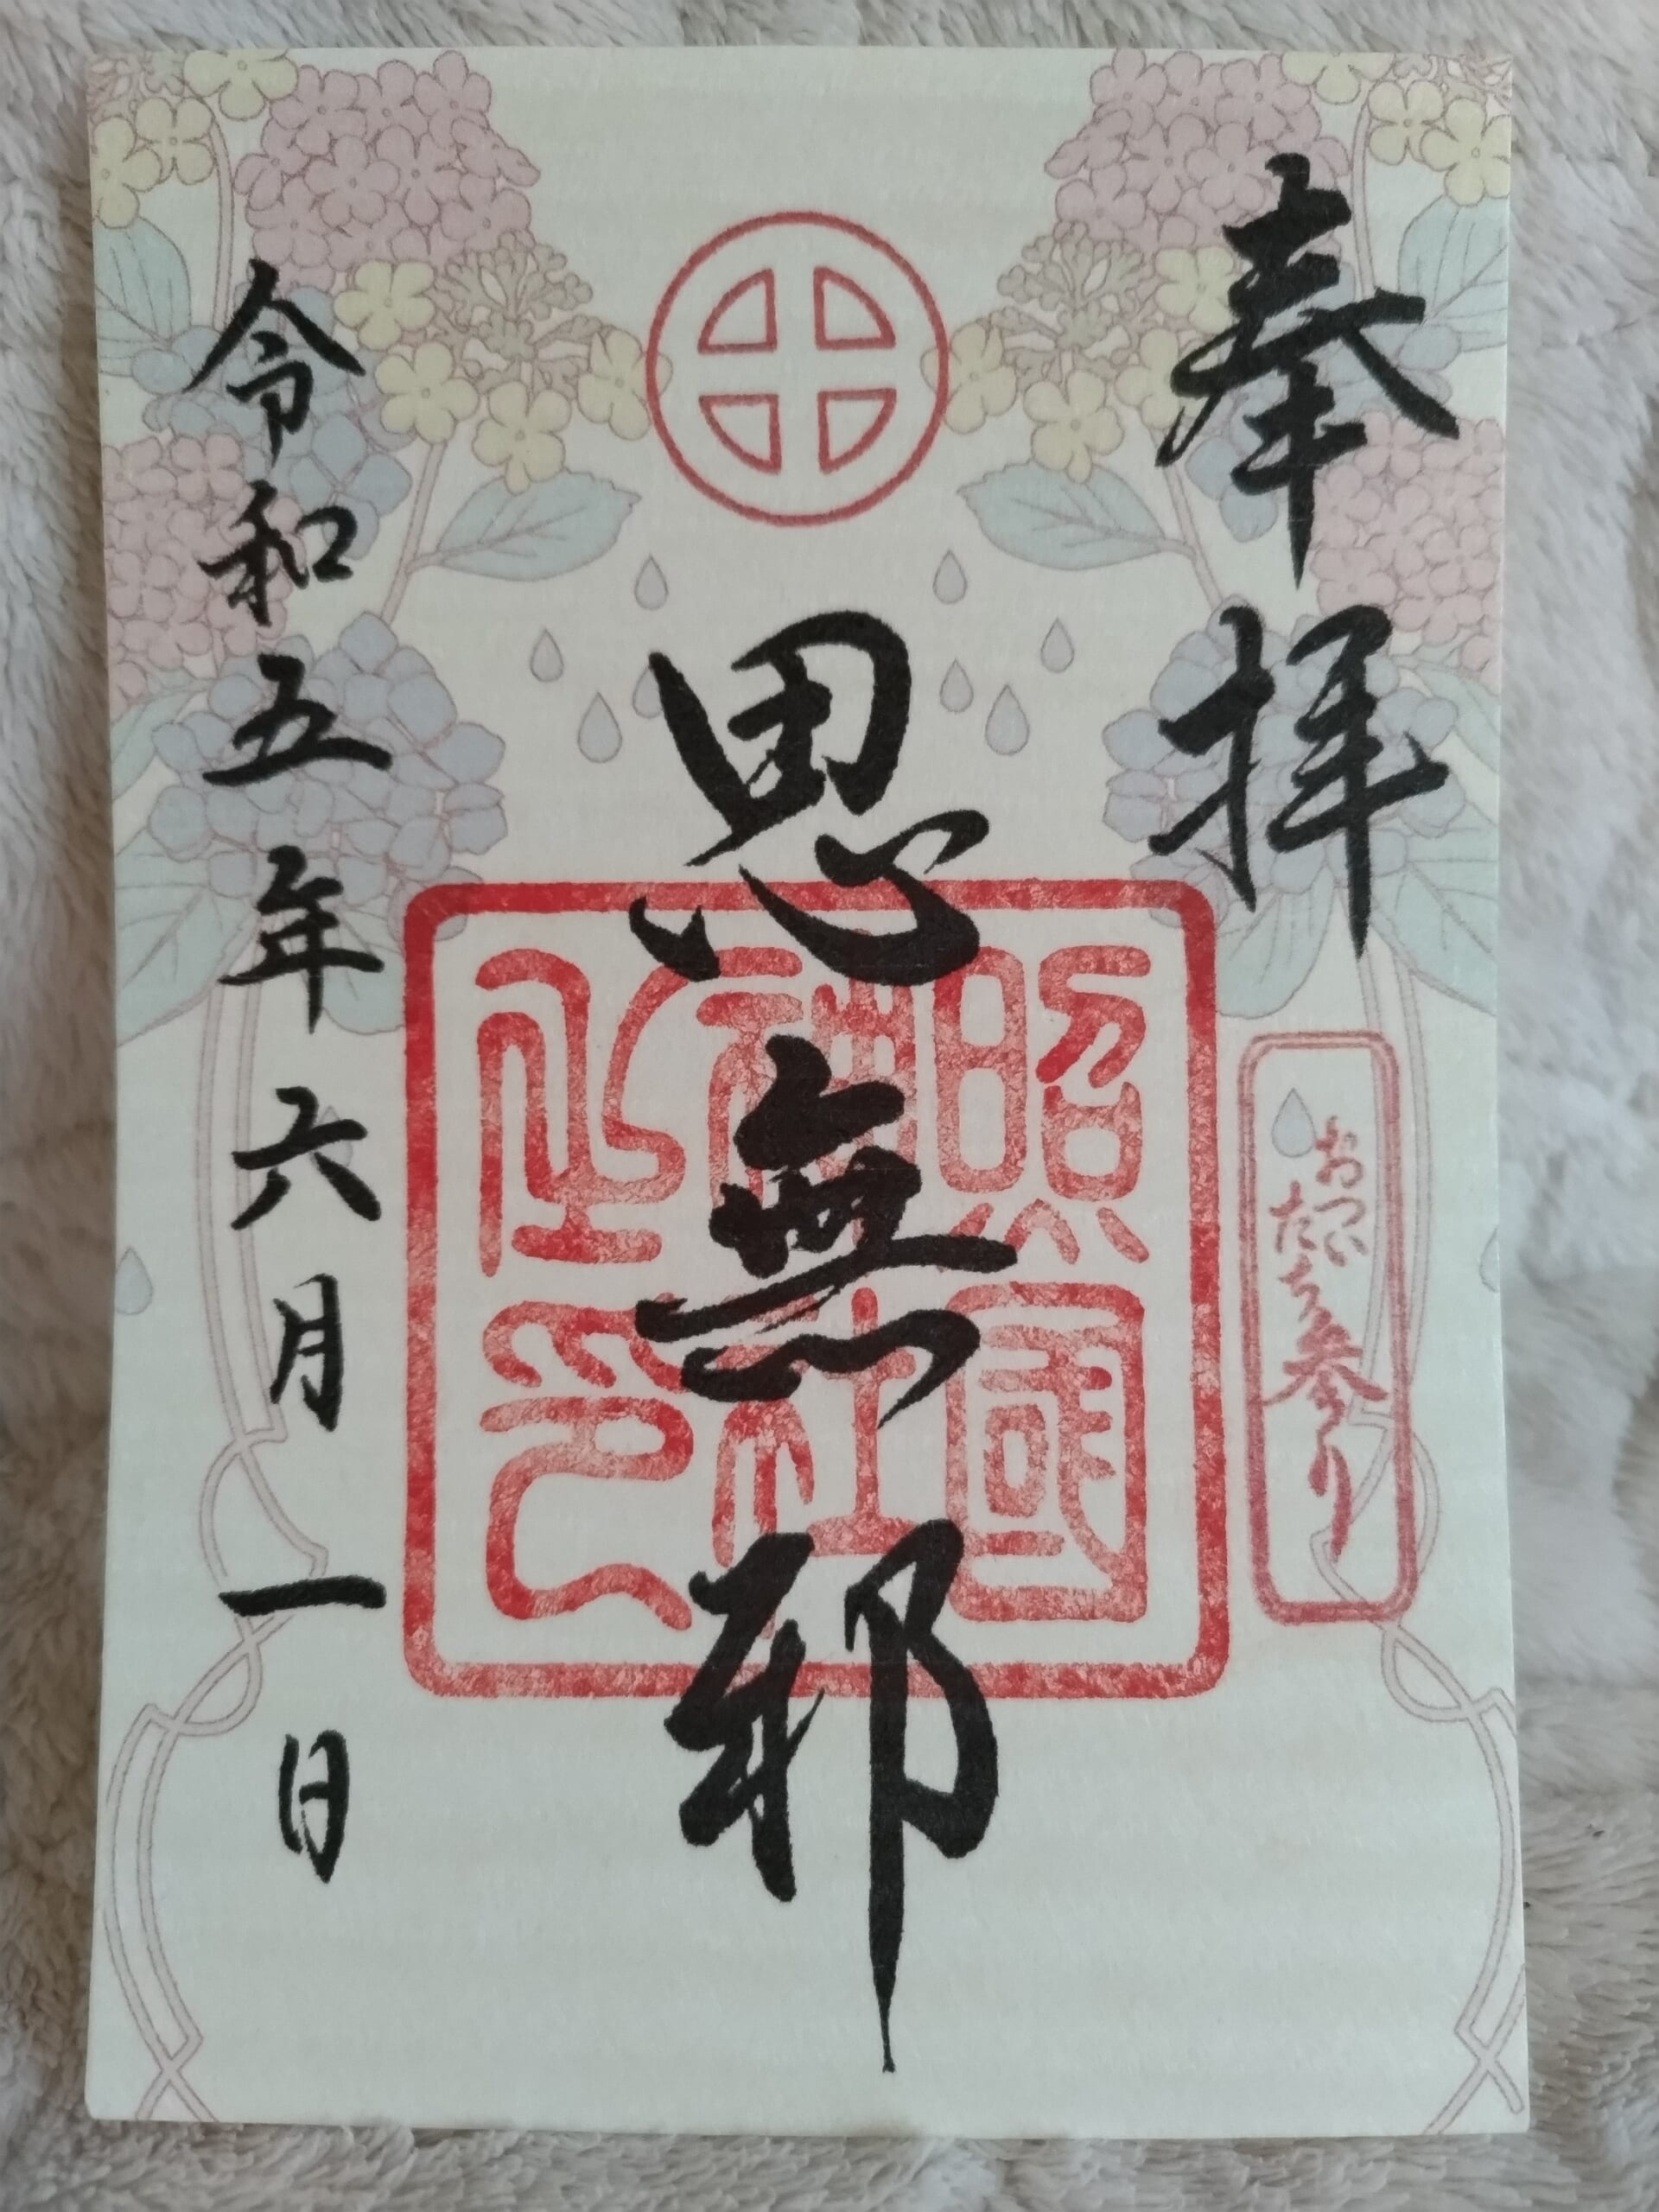 奉拝
おついたち参り
思無邪
照國神社之印
令和五年六月一日